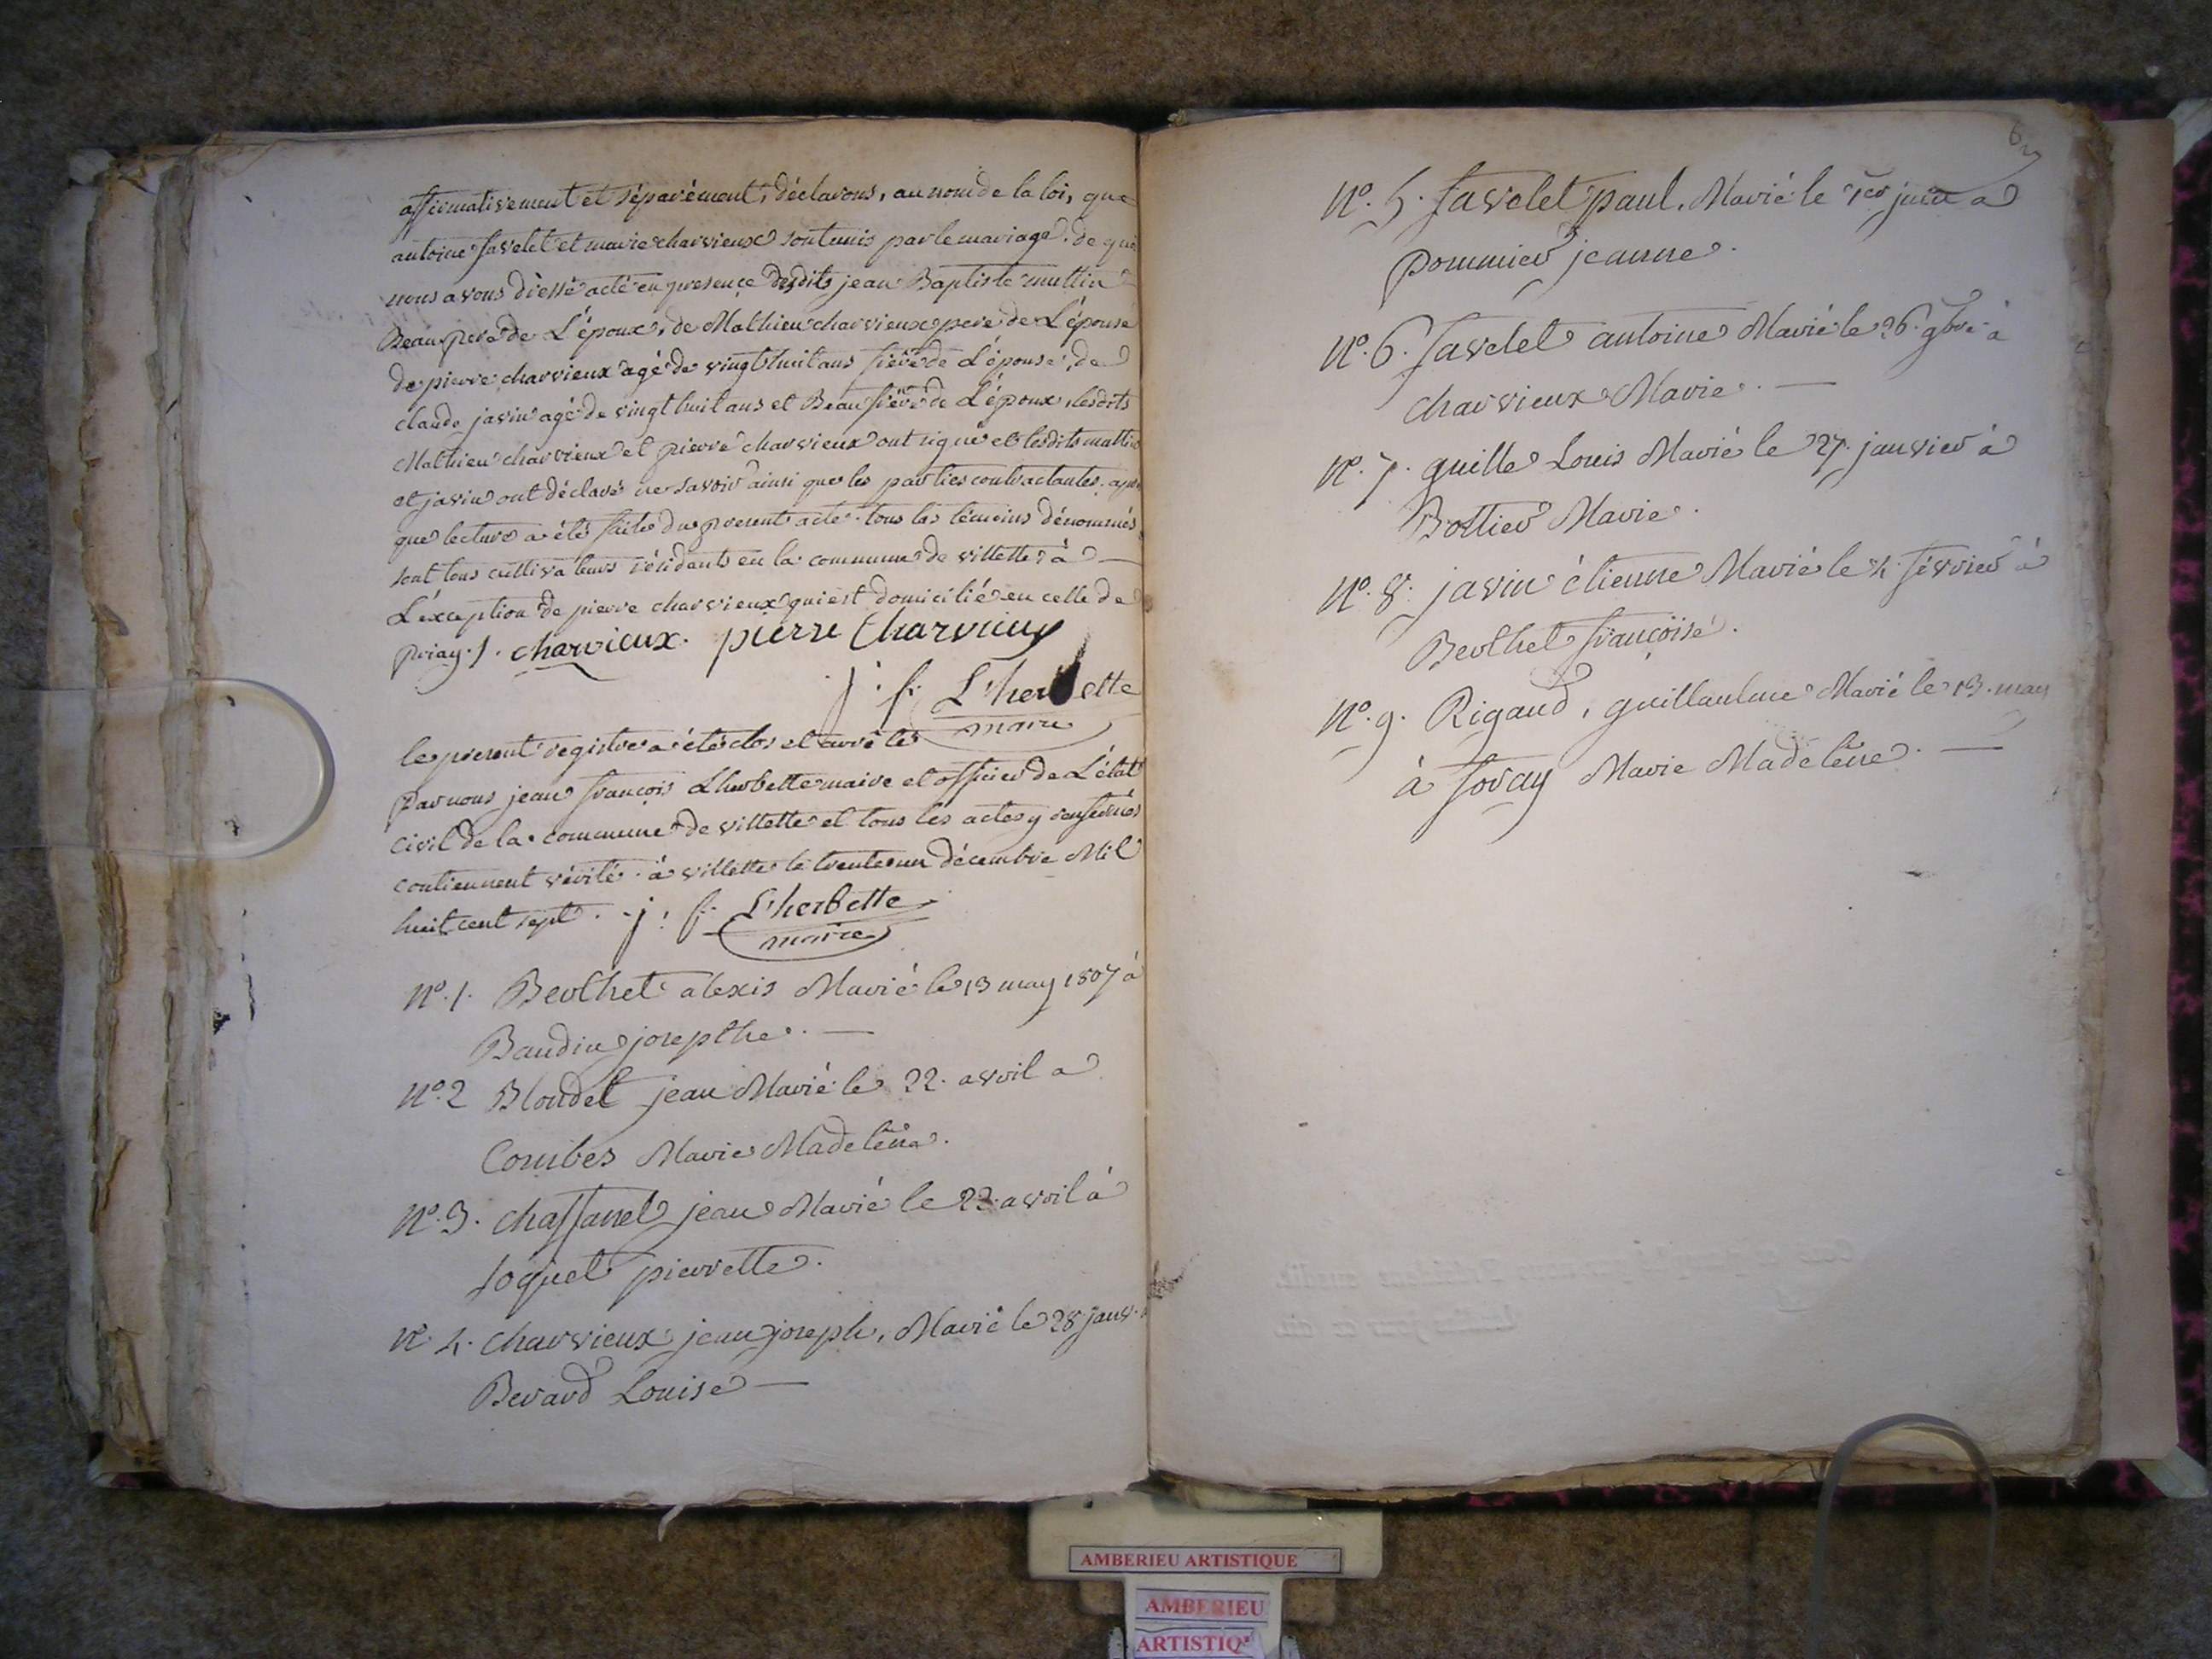 affirmativement et séparément, déclarons, au nom de la loi, que
antoine favelet et marie charvieux sont unis par le mariage. de quoi
nous avons dressé acte en presence desdits jean Baptiste muttin
Beaupere de L'époux, de Mathieu charvieux pere de L'épouse
de pierre charvieux agé de vingt huit ans frère de L'épouse, de
claude javin agé de vingt huit ans et Beaufrère de L'époux, lesdits
Mathieu charvieux et pierre charvieux ont signé et lesdits muttin
et javin ont déclaré ne savoir ainsi que les parties contractantes. après
que lecture a été faite du present acte. tous les témoins dénommés
sont tous cultivateurs résidants en la commune de villette à
L'exception de pierre charvieux qui est domicilié en celle de
priay ./. charvieux. pierre Charvieux
j. f. L'herbette
maire
le present registre a été clos et arrêté
par nous jean françois Lherbette maire et officier de L'état
civil de la commune de villette et tous les actes y renfermés
contiennent vérité. à villette le trente un décembre Mil
huit cent sept. j. f. L'herbette
maire
N°. 1. Berthet alexis Marié le 13 may 1807 à
Baudin josepthe. —
N°. 2 Blondel jean Marié le 22. avril a
Combes Marie Madelène.
N°. 3. chassanel jean Marié le 22. avril à
soquet pierrette.
N°. 4. charvieux jean joseph, Marié le 28 janv. à
Berard Louise —
63
N°. 5. favelet paul. Marié le 1er juin a
pommier jeanne.
N°. 6. favelet antoine Marié le 26. 9bre à
charvieux Marie. —
N°. 7. guille Louis Marié le 27. janvier à
Bottier Marie.
N°. 8. javin étienne Marié le 4. février à
Berthet françoise.
N°. 9. Rigaud, guillaulme Marié le 13. may
à foray Marie Madelène. —
AMBERIEU ARTISTIQUE
AMBERIEU
ARTISTIQ